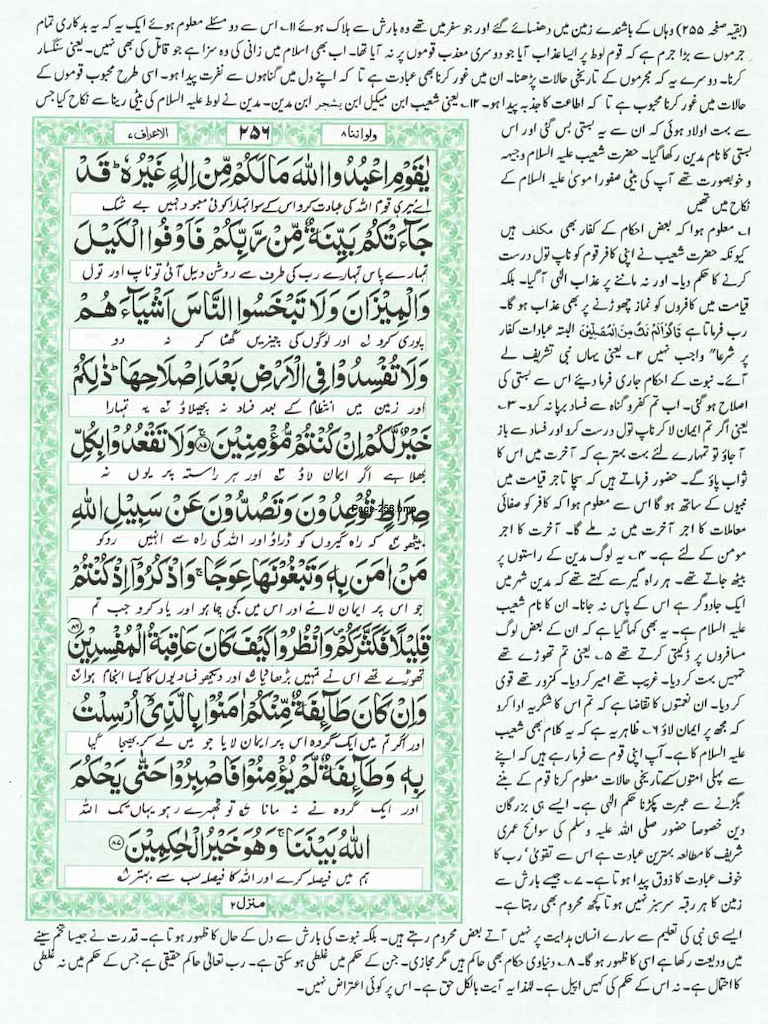 (بقیہ صفحہ ۲۵۵) وہاں کے باشندے زمین میں دھنسائے گئے اور جو سفر میں تھے وہ بارش سے ہلاک ہوئے ۱۱۔ اس سے دو مسئلے معلوم ہوئے ایک یہ کہ یہ بدکاری تمام
جرموں سے بڑا جرم ہے کہ قوم لوط پر ایسا عذاب آیا جو دوسری معذب قوموں پر نہ آیا تھا۔ اب بھی اسلام میں زانی کی وہ سزا ہے جو قاتل کی بھی نہیں۔ یعنی سنگسار
کرنا۔ دوسرے یہ کہ مجرموں کے تاریخی حالات پڑھنا۔ ان میں غور کرنا بھی عبادت ہے تا کہ اپنے دل میں گناہوں سے نفرت پیدا ہو۔ اسی طرح محبوب قوموں کے
حالات میں غور کرنا محبوب ہے تا کہ اطاعت کا جذبہ پیدا ہو۔ ۱۲۔ یعنی شعیب ابن میکیل ابن یشجر ابن مدین۔ مدین نے لوط علیہ السلام کی بیٹی ریتا سے نکاح کیا جس
سے بہت اولاد ہوئی کہ ان سے یہ بستی بس گئی اور اس
بستی کا نام مدین رکھا گیا۔ حضرت شعیب علیہ السلام وجیہہ
و خوبصورت تھے آپ کی بیٹی صفورا موسیٰ علیہ السلام کے
نکاح میں تھیں
۱۔ معلوم ہوا کہ بعض احکام کے کفار بھی مکلف ہیں
کیونکہ حضرت شعیب نے اپنی کافر قوم کو ناپ تول درست
کرنے کا حکم دیا۔ اور نہ ماننے پر عذاب الٰہی آ گیا۔ بلکہ
قیامت میں کافروں کو نماز چھوڑنے پر بھی عذاب ہو گا۔
رب فرماتا ہے قَالُوْالَمْ نَكُ مِنَ الْمُصَلِّيْنَ البتہ عبادات کفار
پر شرعاً واجب نہیں ۲۔ یعنی یہاں نبی تشریف لے
آئے۔ نبوت کے احکام جاری فرما دیئے اس سے بستی کی
اصلاح ہو گئی۔ اب تم کفر و گناہ سے فساد برپا نہ کرو۔ ۳۔
یعنی اگر تم ایمان لا کر ناپ تول درست کرو اور فساد سے باز
آ جاؤ تو تمہارے لئے بہت بہتر ہے کہ آخرت میں اس کا
ثواب پاؤ گے۔ حضور فرماتے ہیں کہ سچا تاجر قیامت میں
نبیوں کے ساتھ ہو گا اس سے معلوم ہوا کہ کافر کو صفائی
معاملات کا اجر آخرت میں نہ ملے گا۔ آخرت کا اجر
مومن کے لئے ہے۔ ۴۔ یہ لوگ مدین کے راستوں پر
بیٹھ جاتے تھے۔ ہر راہ گیر سے کہتے تھے کہ مدین شہر میں
ایک جادوگر ہے اس کے پاس نہ جانا۔ ان کا نام شعیب
علیہ السلام ہے۔ یہ بھی کہا گیا ہے کہ ان کے بعض لوگ
مسافروں پر ڈکیتی کرتے تھے ۵۔ یعنی تم تھوڑے تھے
تمہیں بہت کر دیا۔ غریب تھے امیر کر دیا۔ کمزور تھے قوی
کر دیا۔ ان نعمتوں کا تقاضا ہے کہ تم اس کا شکریہ ادا کرو
کہ مجھ پر ایمان لاؤ ۶۔ ظاہر یہ ہے کہ یہ کلام بھی شعیب
علیہ السلام کا ہے۔ آپ اپنی قوم سے فرما رہے ہیں کہ اپنے
سے پہلی امتوں کے تاریخی حالات معلوم کرنا قوم کے بننے
بگڑنے سے عبرت پکڑنا حکم الٰہی ہے۔ ایسے ہی بزرگان
دین خصوصاً حضور صلی اللہ علیہ وسلم کی سوانح عمری
شریف کا مطالعہ بہترین عبادت ہے اس سے تقویٰ، رب کا
خوف عبادت کا ذوق پیدا ہوتا ہے۔ ۷۔ جیسے بارش سے
زمین کا ہر رقبہ سرسبز نہیں ہوتا کچھ محروم بھی رہتا ہے۔
ولو اننا۸
۲۵۶
الاعراف۷
يٰقَوْمِ اعْبُدُوا اللّٰهَ مَا لَكُمْ مِّنْ اِلٰهٍ غَيْرُهٗ ؕ قَدْ
اے میری قوم اللہ کی عبادت کرو اس کے سوا تمہارا کوئی معبود نہیں بے شک
جَآءَتْكُمْ بَيِّنَةٌ مِّنْ رَّبِّكُمْ فَاَوْفُوا الْكَيْلَ
تمہارے پاس تمہارے رب کی طرف سے روشن دلیل آئی تو ناپ اور تول
وَالْمِيْزَانَ وَلَا تَبْخَسُوا النَّاسَ اَشْيَآءَهُمْ
پوری کرو اور لوگوں کی چیزیں گھٹا کر نہ دو
وَلَا تُفْسِدُوْا فِى الْاَرْضِ بَعْدَ اِصْلَاحِهَا ؕ ذٰلِكُمْ
اور زمین میں انتظام کے بعد فساد نہ پھیلاؤ یہ تمہارا
خَيْرٌ لَّكُمْ اِنْ كُنْتُمْ مُّؤْمِنِيْنَ ۚ﴿۸۵﴾ وَلَا تَقْعُدُوْا بِكُلِّ
بھلا ہے اگر ایمان لاؤ اور ہر راستہ پر یوں نہ
صِرَاطٍ تُوْعِدُوْنَ وَتَصُدُّوْنَ عَنْ سَبِيْلِ اللّٰهِ
Page-258.bmp
بیٹھو کہ راہ گیروں کو ڈراؤ اور اللہ کی راہ سے انہیں روکو
مَنْ اٰمَنَ بِهٖ وَتَبْغُوْنَهَا عِوَجًا ۚ وَاذْكُرُوْٓا اِذْ كُنْتُمْ
جو اس پر ایمان لائے اور اس میں کجی چاہو اور یاد کرو جب تم
قَلِيْلًا فَكَثَّرَكُمْ ۪ وَانْظُرُوْا كَيْفَ كَانَ عَاقِبَةُ الْمُفْسِدِيْنَ ﴿۸۶﴾
تھوڑے تھے اس نے تمہیں بڑھا دیا اور دیکھو فسادیوں کا کیسا انجام ہوا
وَاِنْ كَانَ طَآئِفَةٌ مِّنْكُمْ اٰمَنُوْا بِالَّذِىْٓ اُرْسِلْتُ
اور اگر تم میں ایک گروہ اس پر ایمان لایا جو میں لے کر بھیجا گیا
بِهٖ وَطَآئِفَةٌ لَّمْ يُؤْمِنُوْا فَاصْبِرُوْا حَتّٰى يَحْكُمَ
اور ایک گروہ نے نہ مانا تو ٹھہرے رہو یہاں تک اللہ
اللّٰهُ بَيْنَنَا ۚ وَهُوَ خَيْرُ الْحٰكِمِيْنَ ﴿۸۷﴾
ہم میں فیصلہ کرے اور اللہ کا فیصلہ سب سے بہتر
منزل۲
ایسے ہی نبی کی تعلیم سے سارے انسان ہدایت پر نہیں آتے بعض محروم رہتے ہیں۔ بلکہ نبوت کی بارش سے دل کے حال کا ظہور ہوتا ہے۔ قدرت نے جیسا تخم سینے
میں ودیعت رکھا ہے اسی کا ظہور ہو گا۔ ۸۔ دنیاوی حکام بھی حاکم ہیں مگر مجازی۔ جن کے حکم میں غلطی ہو سکتی ہے۔ رب تعالیٰ حاکم حقیقی ہے جس کے حکم میں نہ غلطی
کا احتمال ہے۔ نہ اس کے حکم کی کہیں اپیل ہے۔ لہٰذا یہ آیت بالکل حق ہے۔ اس پر کوئی اعتراض نہیں۔